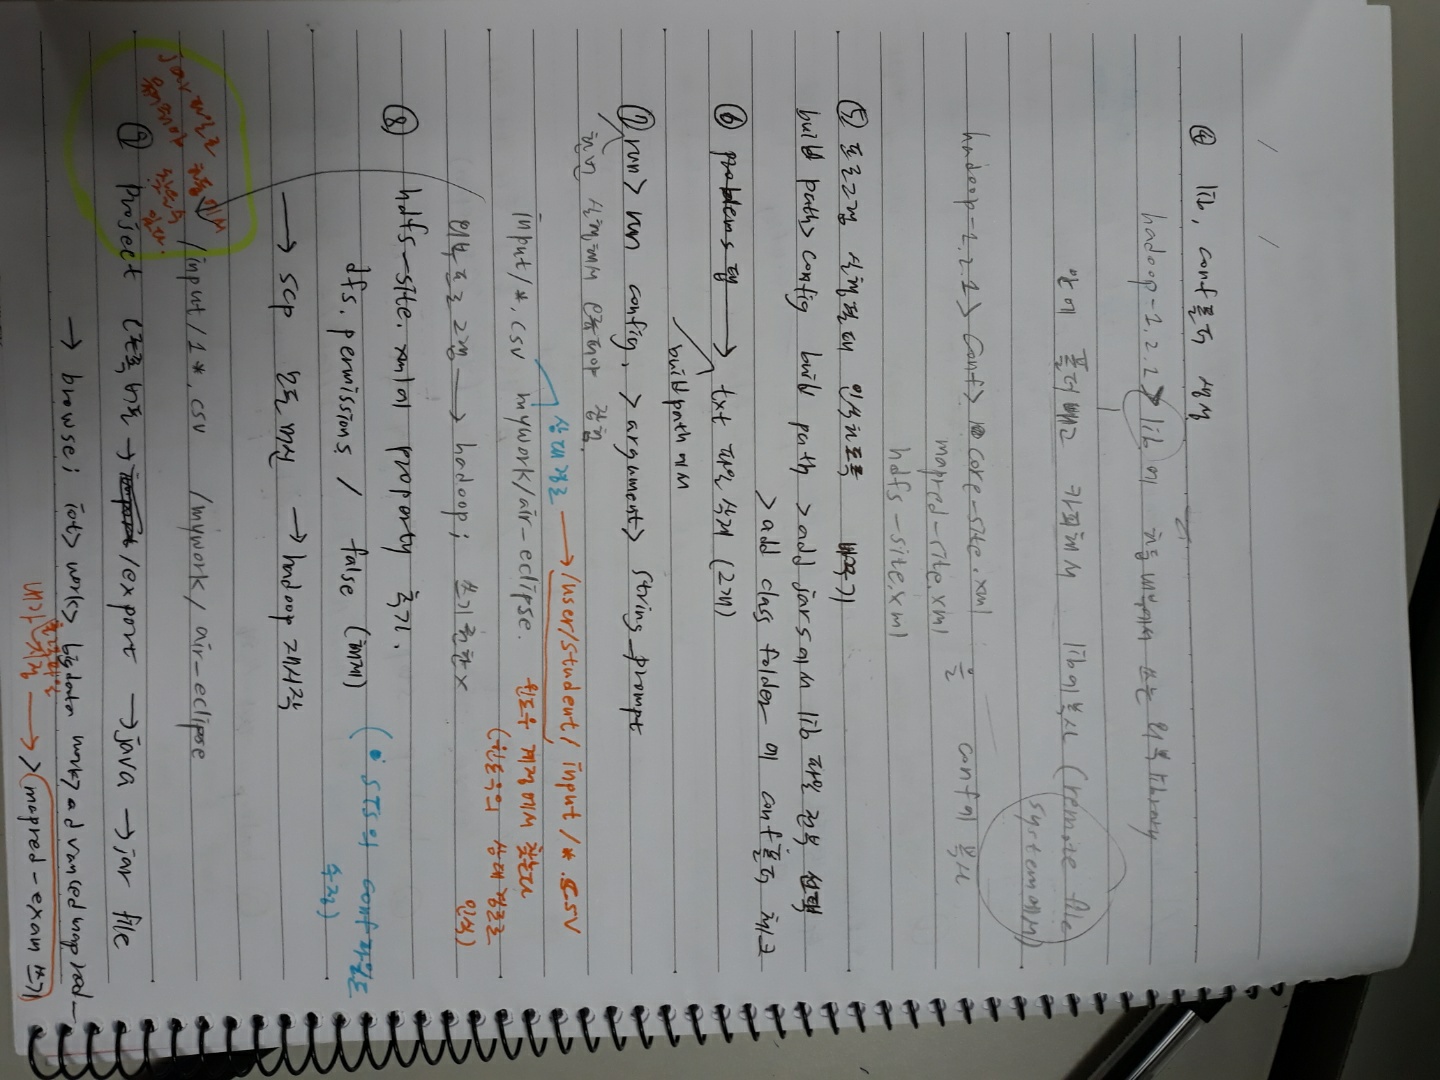 ④ lib, conf폴더 생성
hadoop-1.2.2 > lib 에 하둡 내부에서 쓰는 외부 library
안에 폴더 빼고 카피해서 lib에 복사 (remote file
system에서)
hadoop-1.2.1 > conf > core-site.xml 을 conf에 복사
mapred-site.xml
hdfs-site.xml
⑤ 프로그램 실행될때 인식하도록 바꾸기
build path > config build path > add jars에서 lib 파일 전부 선택
> add class folder 에 conf폴더 체크
⑥ problems 탭 → txt 파일 삭제 (2개)
build path에서
⑦ run > run config. > argument > string_prompt
한번 실행해서 오류떠야 잡힘.
상대경로 → /user/student/ input/*.csv
input/*.csv mywork/air-eclipse. 윈도우 계정에서 찾는다
(윈도우의 상대 경로로
인식)
외부프로그램 → hadoop; 쓰기권한x
⑧ hdfs-site.xml에 property 추가.
dfs.permissions / false (해제)
(• STS의 conf파일도
수정)
→ scp 모든 머신 → hadoop 재시작
jar파일로 하둡에서
찾을수
있다.
/input/1*.csv /mywork/air-eclipse
⑨ project 오른쪽버튼 → /export → java → jar file
→ browse; iot > work > bigdata work > advanced mapred-
내가 지정 → > mapred-exam 쓰기